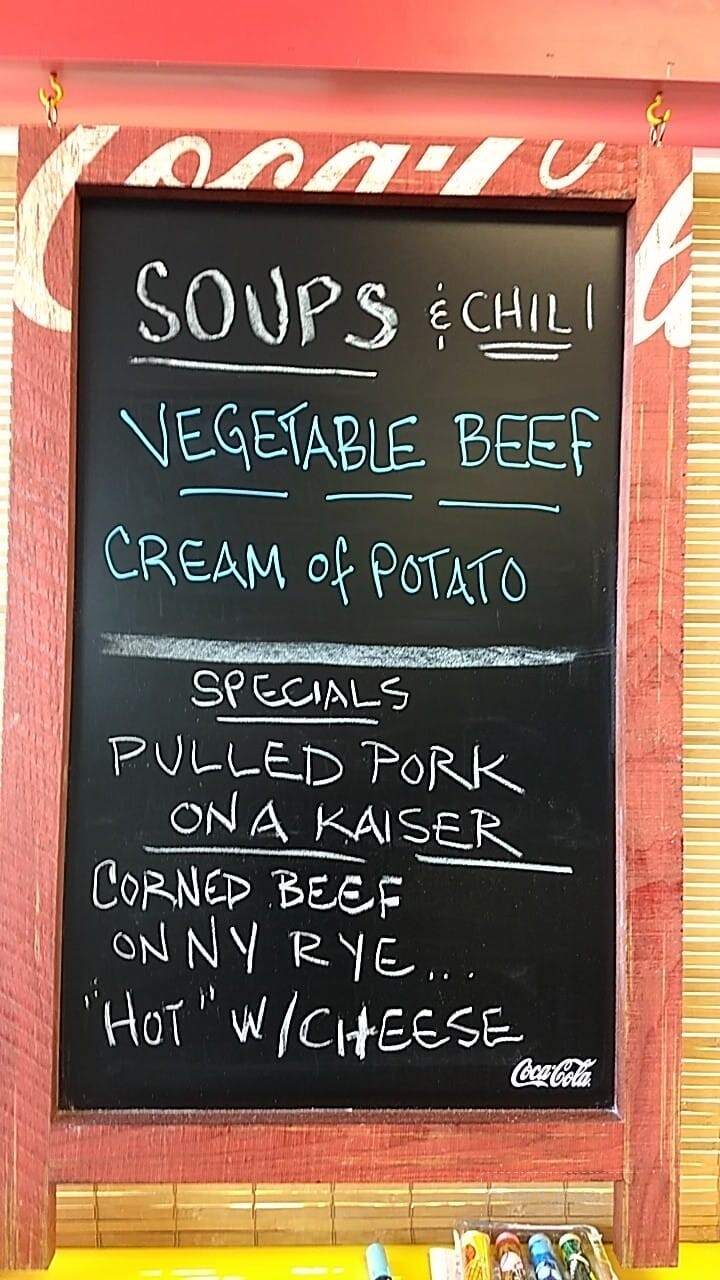 Coca-Cola
SOUPS & CHILI
VEGETABLE BEEF
CREAM of POTATO
SPECIALS
PULLED PORK
ON A KAISER
CORNED BEEF
ON NY RYE...
"HOT" W/CHEESE
Coca-Cola